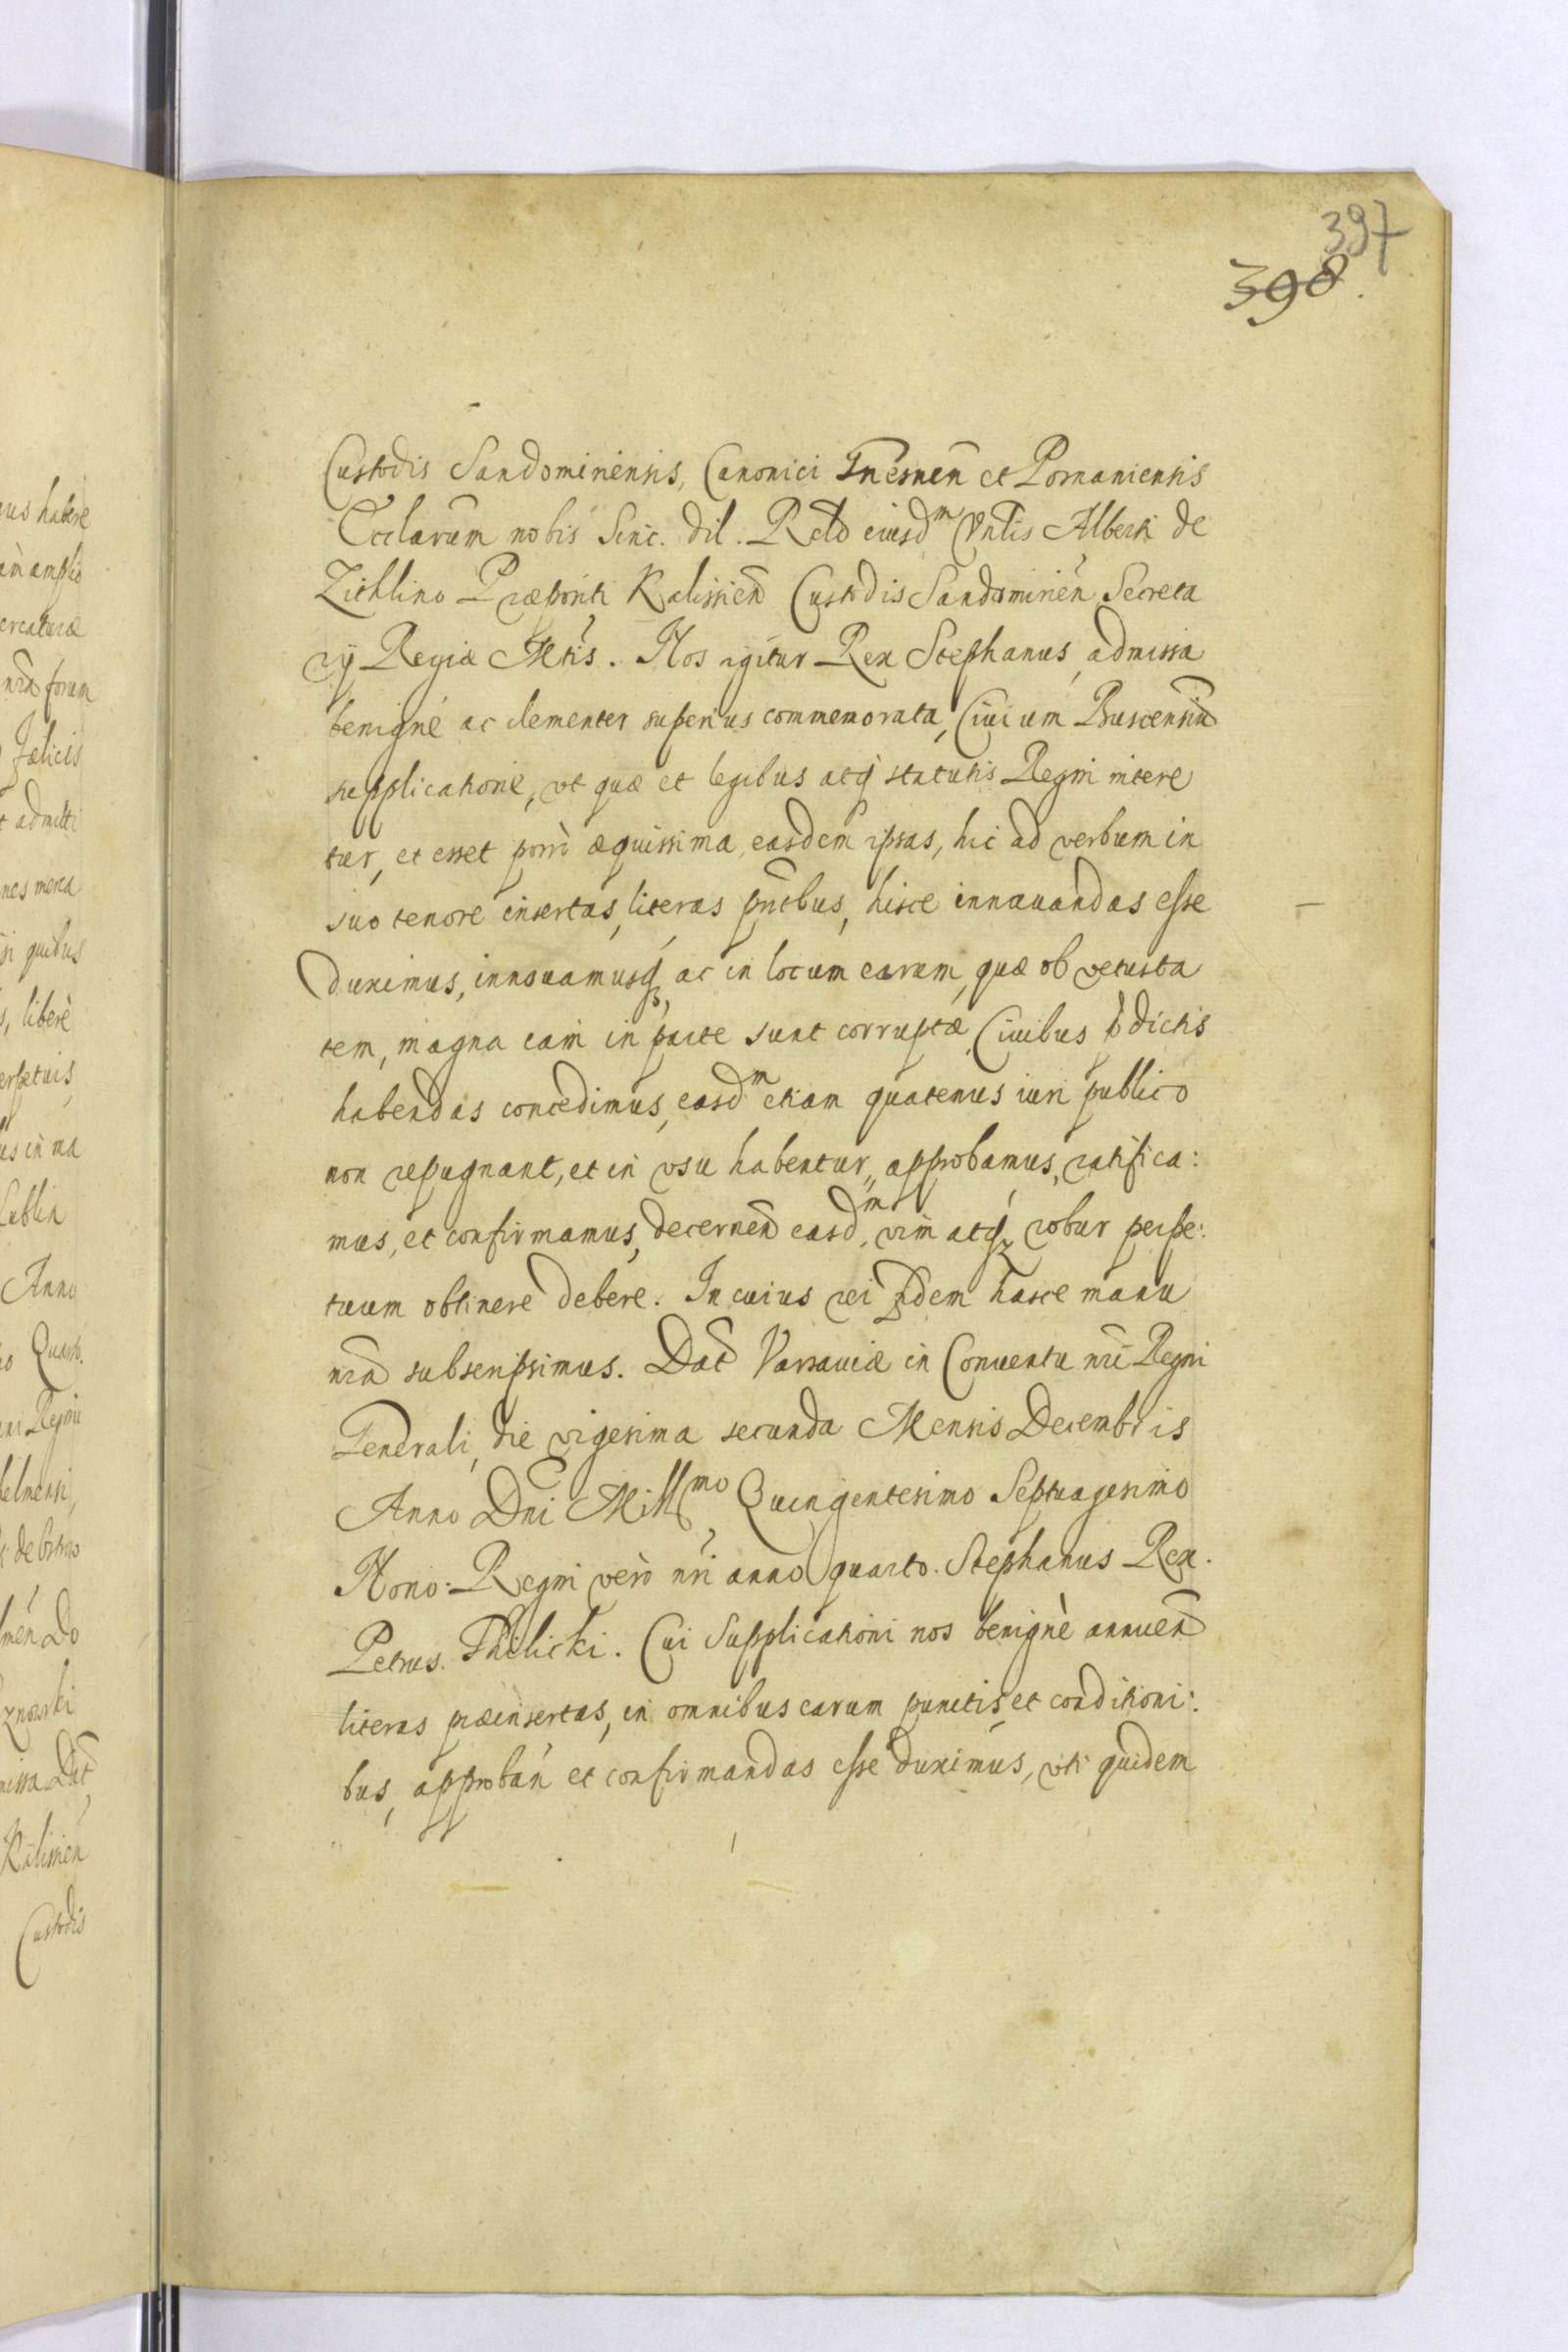 397
398.
Custodis Sandomiriensis, Canonici Gnesnen̄ et Posnaniensis
Ecclarum nobis Sinc. dil. Rel̄o eiusdᵐ Vn̄lis Alberti de
Zichlino Præpositi Kalissien̄ Custodis Sandomirien̄ Secreta
rij Regiæ Mtis. Nos igitur Rex Stephanus, admissa
benignè ac clementer superius commemorata, Ciuium Buscensiū
supplicatione, vt quæ et legibus atq́ statutis Regni nitere
tur, et esset porrò æquissima, easdem ipsas, hic ad verbum in
suo tenore insertas, literas pn̄tibus, hisce innouandas esse
duximus, innouamusq́, ac in locum earum, quæ ob vetusta
tem, magna eam in parte sunt corruptæ, Ciuibus p̄dictis
habendas concedimus, easdᵐ etiam quatenus iuri publico
non repugnant, et in vsu habentur, approbamus, ratifica:
mus, et confirmamus, decernen̄ easdᵐ, vim atq́ robur perpe:
tuum obtinere debere. In cuius rei fidem hasce manu
nr̄a subscripsimus. Dat̄ Varsauiæ in Conuentu nr̄i Regni
Generali, die vigesima secunda Mensis Decembris
Anno Dn̄i Millᵐᵒ Quingentesimo Septuagesimo
Nono. Regni verò nr̄i anno quarto. Stephanus Rex.
Petrus. Thilicki. Cui Supplicationi nos benignè annuen̄
literas præinsertas, in omnibus earum punctis, et conditioni:
bus, approbán et confirmandas esse duximus, vti quidem